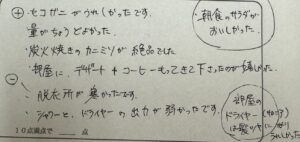 ⊕
・セコガニがうれしかったです.
量がちょうどよかった.
・炭火焼きのカニミソが絶品でした.
・部屋に、デザート+コーヒーもってきて下さったのが嬉しかった.
・朝食のサラダが
おいしかった.
⊖
・脱衣所が寒かったです.
・シャワーと、ドライヤーの出力が弱かったです.
部屋の
ドライヤー
は髪の
られしかった
10点満点で ___ 点